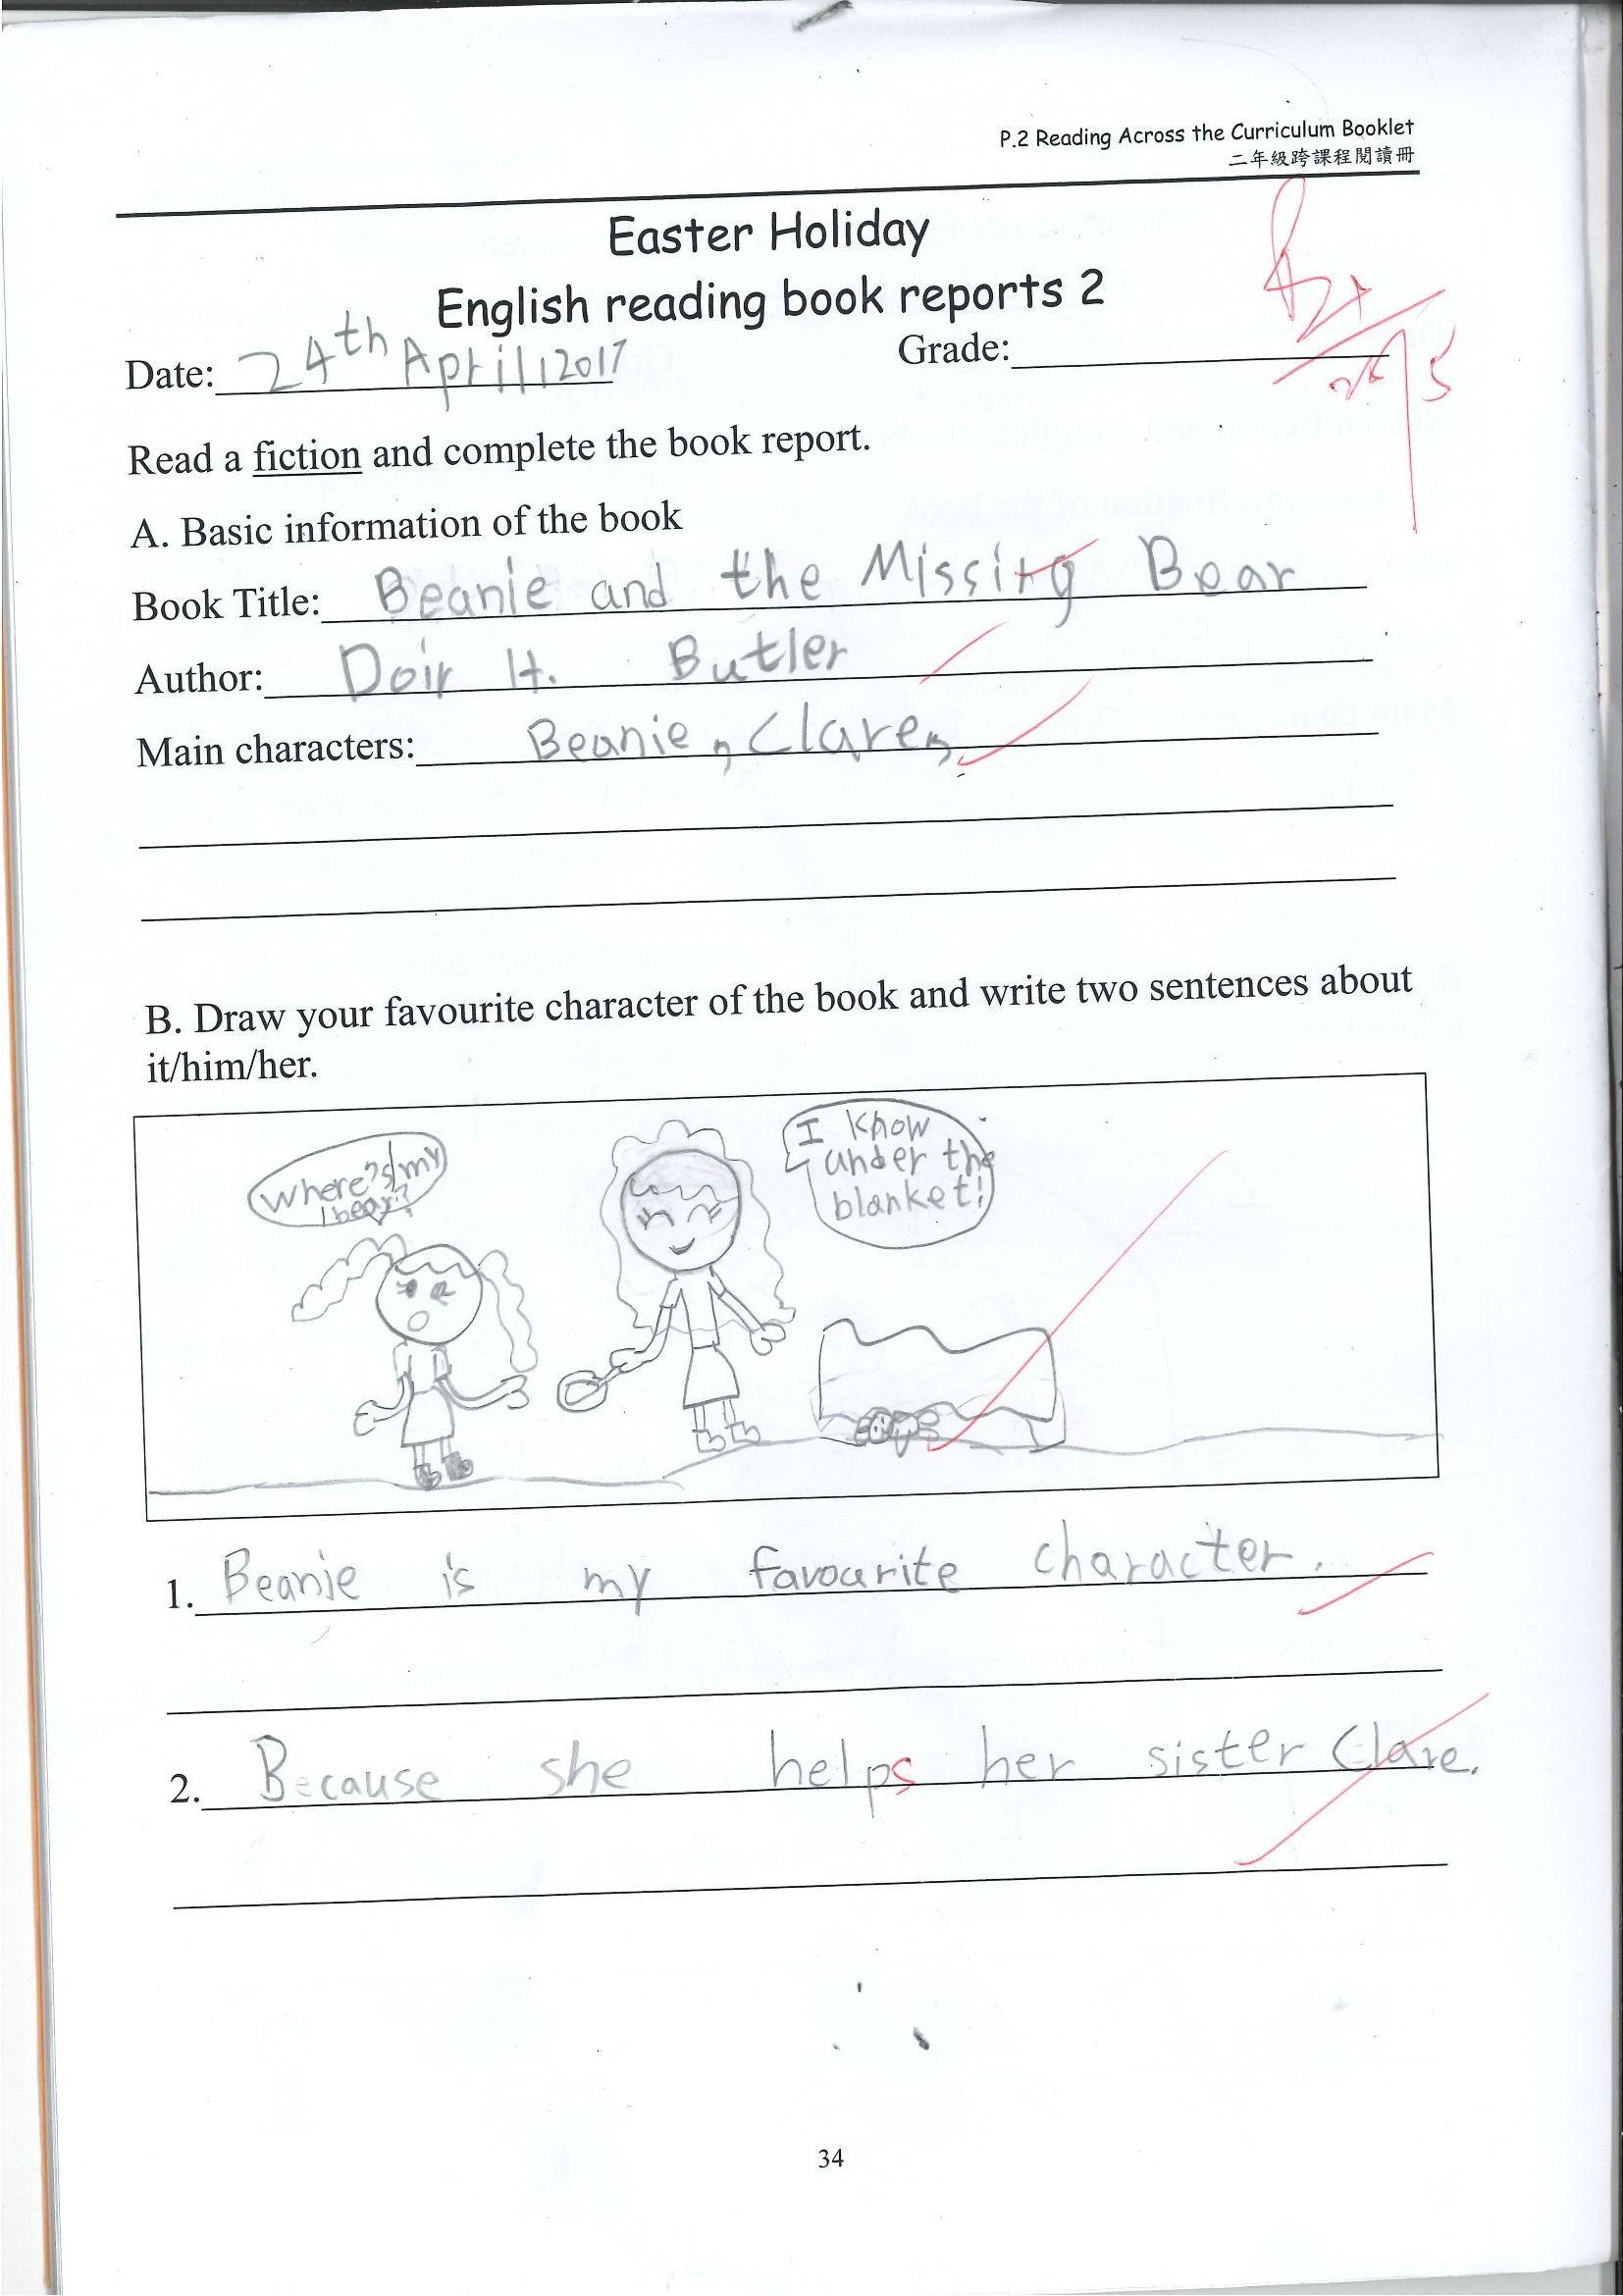 P.2 Reading Across the Curriculum Booklet
二年級跨課程閱讀冊
Easter Holiday
English reading book reports 2
Date: 24th April, 2017 Grade:
Read a fiction and complete the book report.
A. Basic information of the book
Book Title: Beanie and the Missing Bear
Author: Doir H. Butler
Main characters: Beanie, Clare,
B. Draw your favourite character of the book and write two sentences about
it/him/her.
Where's my
bear?
I know
under the
blanket!
1. Beanie is my favourite character.
2. Because she helps her sister Clare.
34